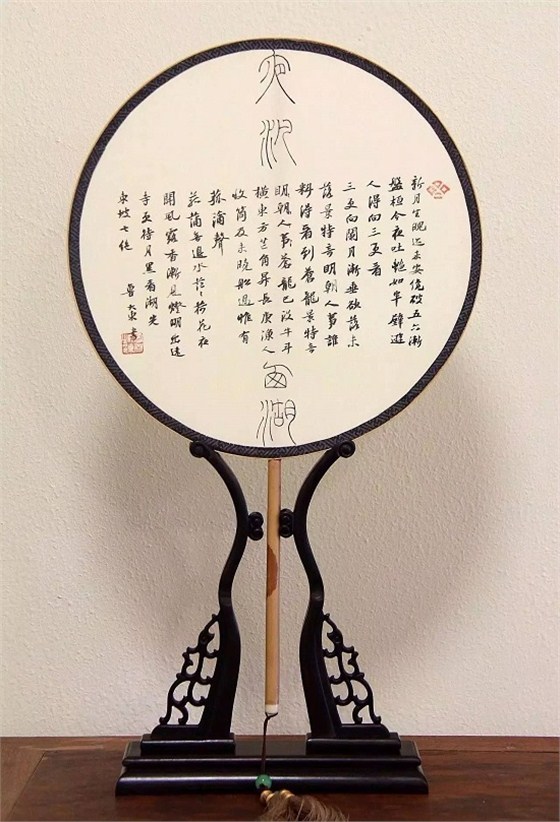 夜汎西湖
新月生魄迹未安纔破五六漸
盤桓今夜吐艷如半璧遊
人得向三更看
三更向闌月漸垂欲落未
落景特奇明朝人事誰
料得看到蒼龍景特奇
明朝人事蒼龍已没牛斗
橫東方芒角昇長庚漁人
收筒及未曉船過惟有
菰蒲聲
菰蒲無邊水茫々荷花夜
開風露香漸見燈明出遠
寺更待月黑看湖光
東坡七絕 魯大東書